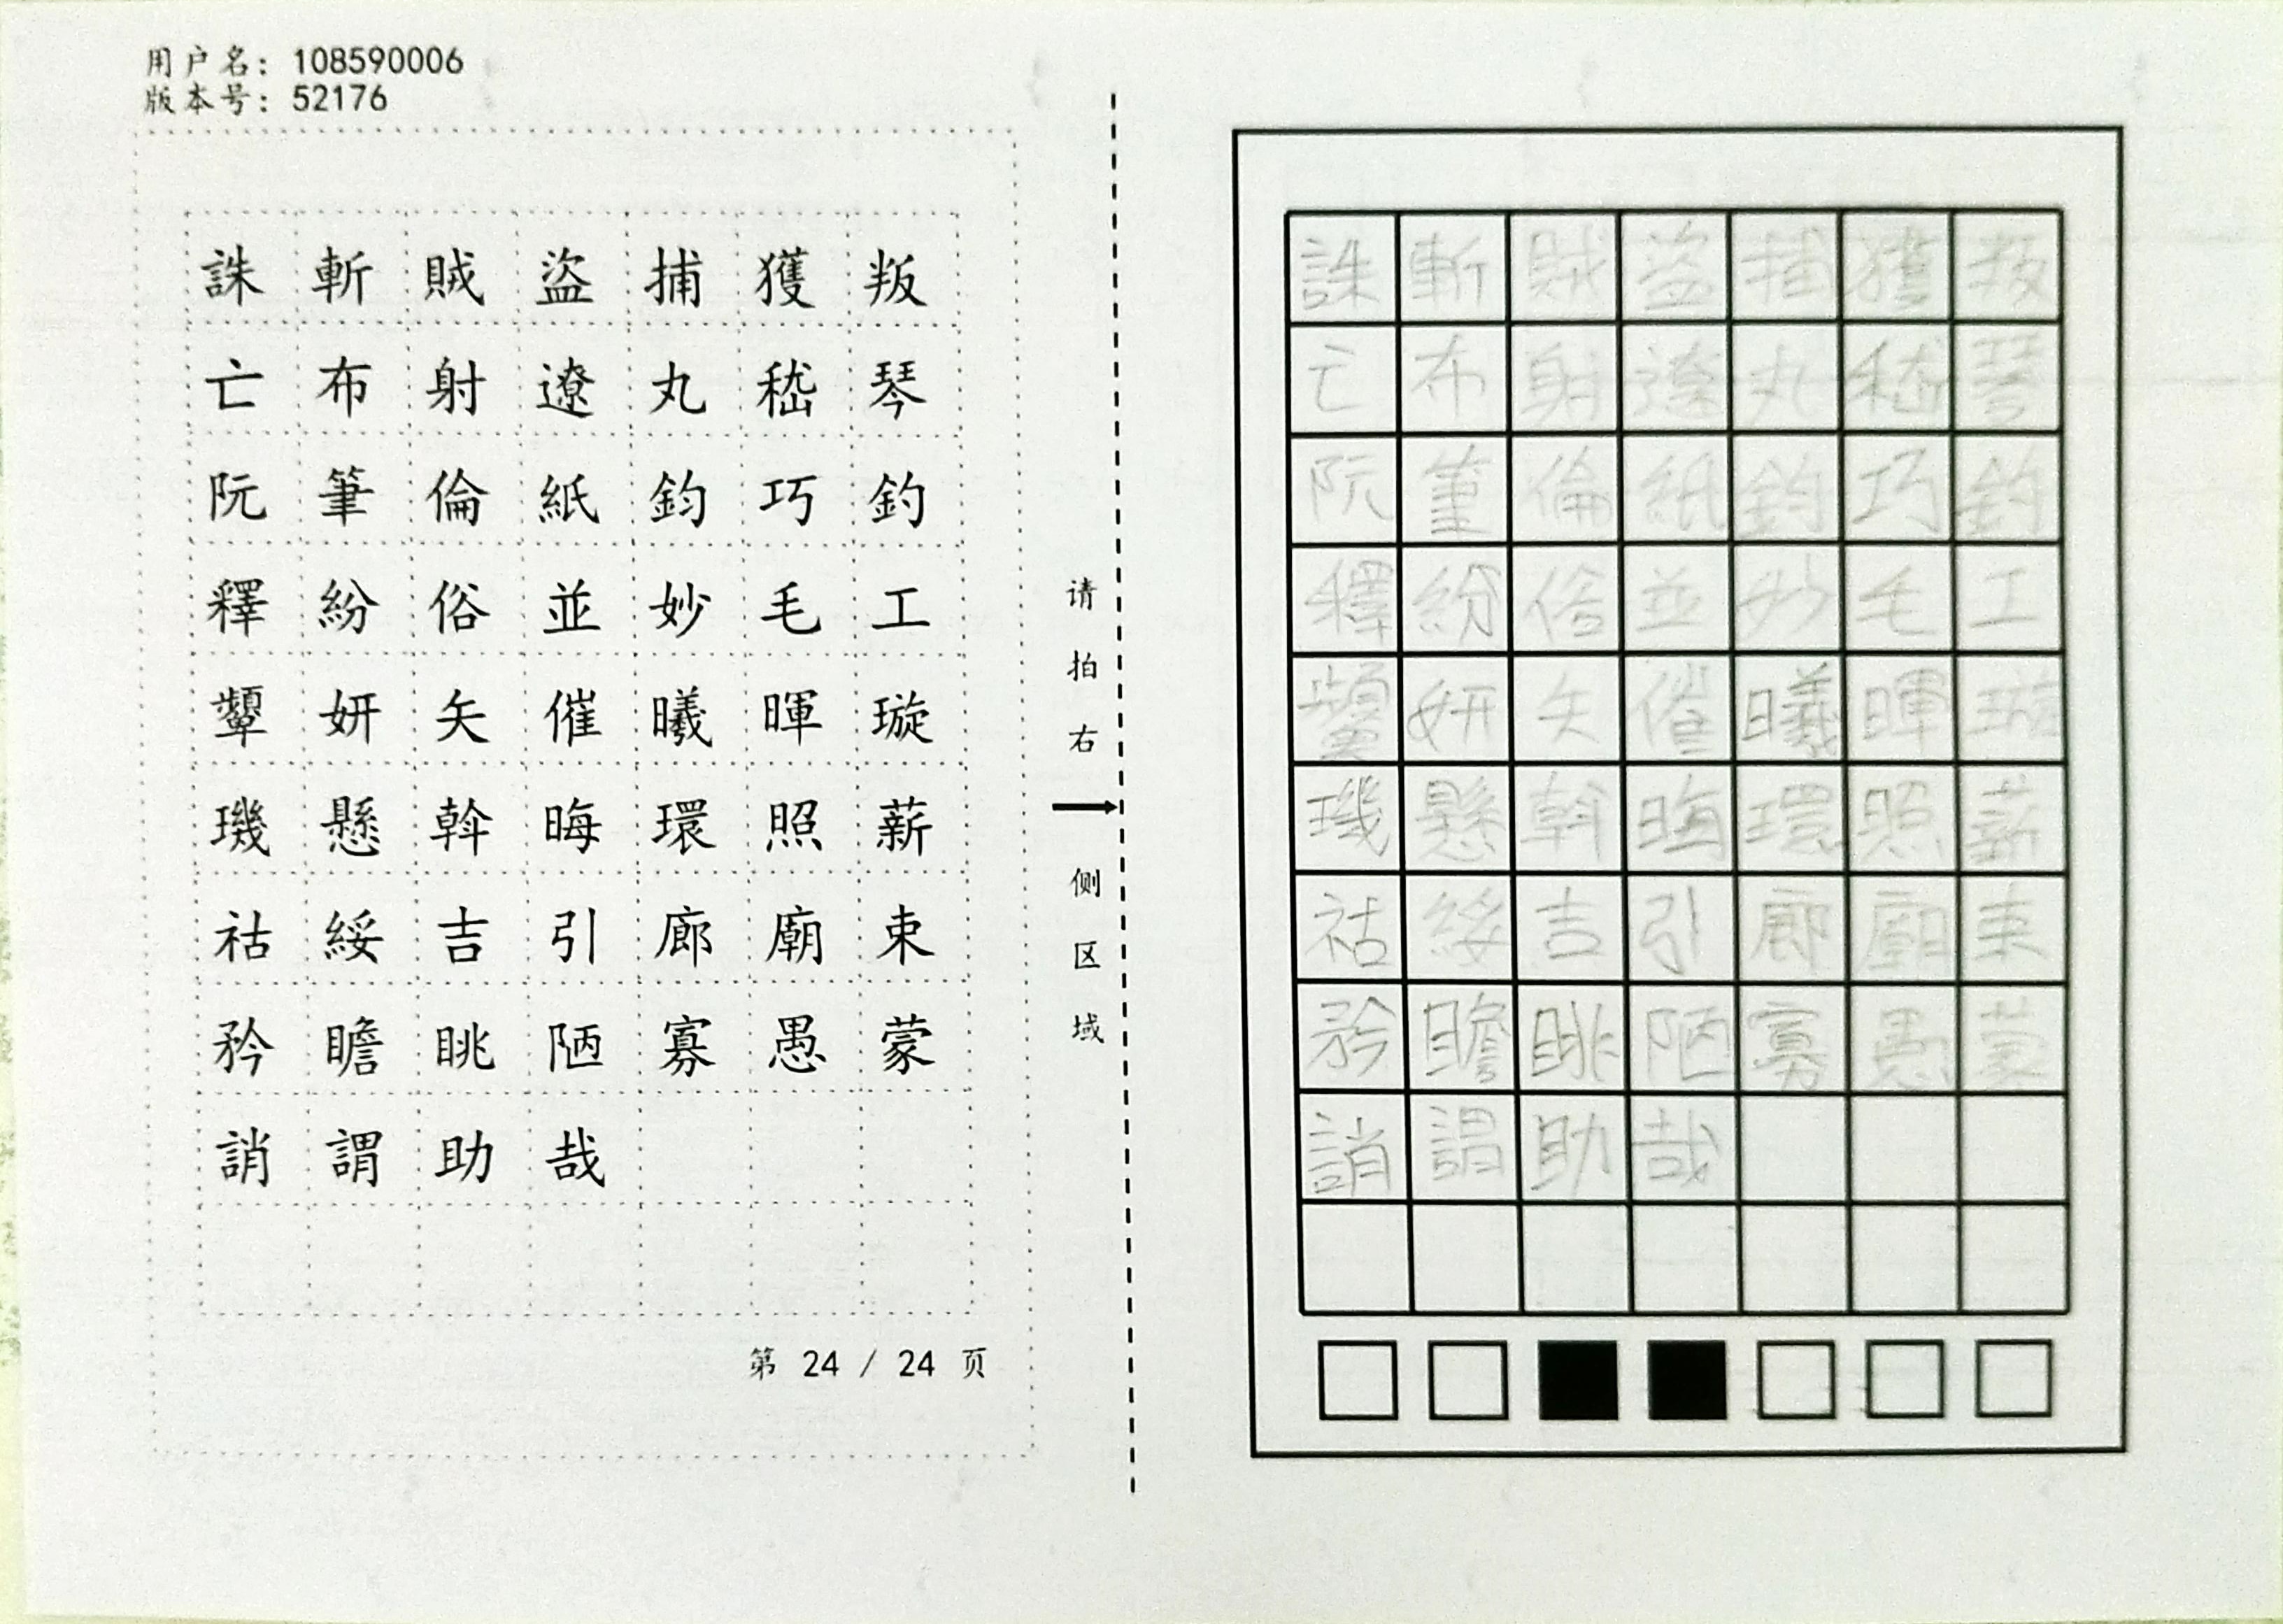 用户名: 108590006
版本号: 52176
誅 斬 賊 盜 捕 獲 叛
亡 布 射 遼 丸 嵇 琴
阮 筆 倫 紙 鈞 巧 釣
釋 紛 俗 並 妙 毛 工
顰 妍 矢 催 曦 暉 璇
璣 懸 斡 晦 環 照 薪
祜 綏 吉 引 廊 廟 束
矜 瞻 眺 陋 寡 愚 蒙
誚 謂 助 哉
第 24 / 24 页
请拍右
侧区域
誅 斬 賊 盜 捕 獲 叛
亡 布 射 遼 丸 嵇 琴
阮 筆 倫 紙 鈞 巧 釣
釋 紛 俗 並 妙 毛 工
顰 妍 矢 催 曦 暉 璇
璣 懸 斡 晦 環 照 薪
祜 綏 吉 引 廊 廟 束
矜 瞻 眺 陋 寡 愚 蒙
誚 謂 助 哉